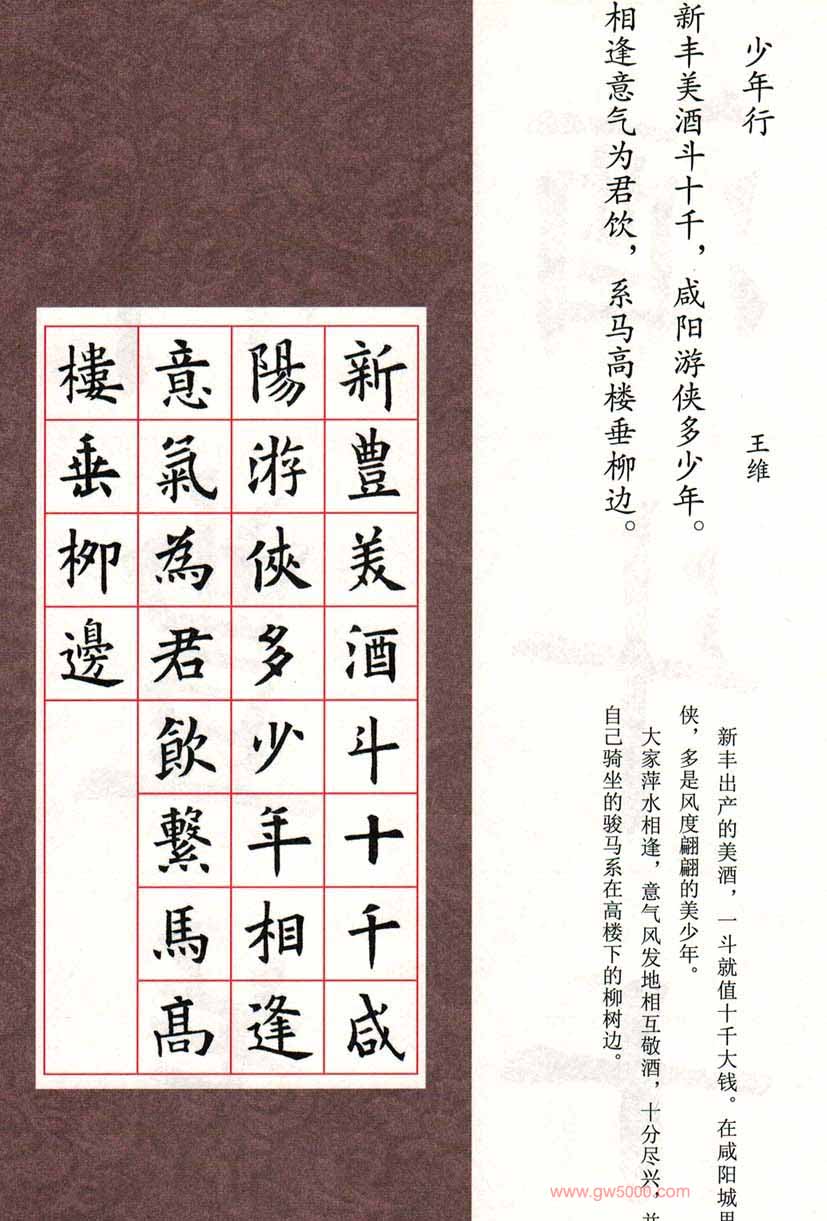 少年行
王维
新丰美酒斗十千，咸阳游侠多少年。
相逢意气为君饮，系马高楼垂柳边。
新丰出产的美酒，一斗就值十千大钱。在咸阳城
侠，多是风度翩翩的美少年。
大家萍水相逢，意气风发地相互敬酒，十分尽兴，
自己骑坐的骏马系在高楼下的柳树边。
新豊美酒斗十千咸
陽游俠多少年相逢
意氣為君飲繫馬髙
樓垂柳邊
www.gw5000.com